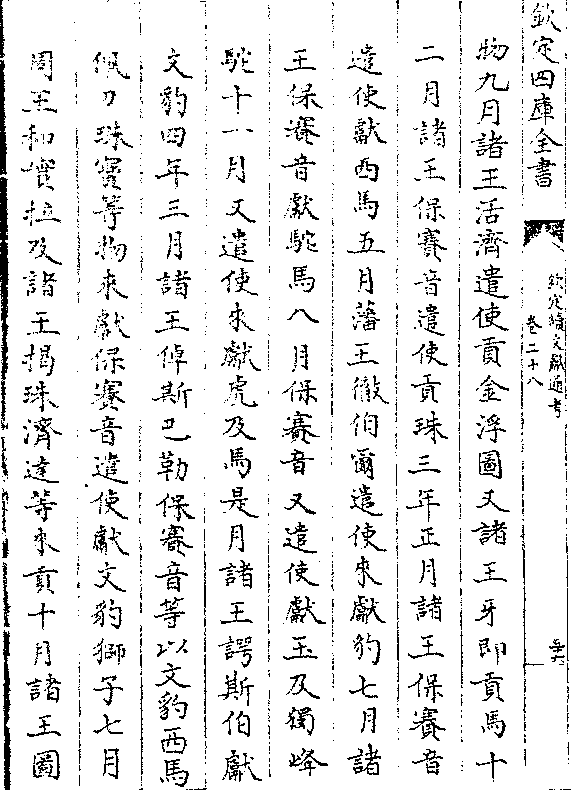 欽定四庫全書
欽定續文獻通考
卷二十八
物九月諸王活濟遣使貢金浮圖又諸王牙即貢馬十
二月諸王保賽音遣使貢珠三年正月諸王保賽音
遣使獻西馬五月藩王徹伯爾遣使來獻豹七月諸
王保賽音獻駝馬八月保賽音又遣使獻玉及獨峰
駝十一月又遣使來獻虎及馬是月諸王諤斯伯獻
文豹四年三月諸王倬斯巴勒保賽音等以文豹西馬
佩刀珠寶等物來獻保賽音遣使獻文豹獅子七月
周王和實拉及諸王揭珠濟達等來貢十月諸王圖